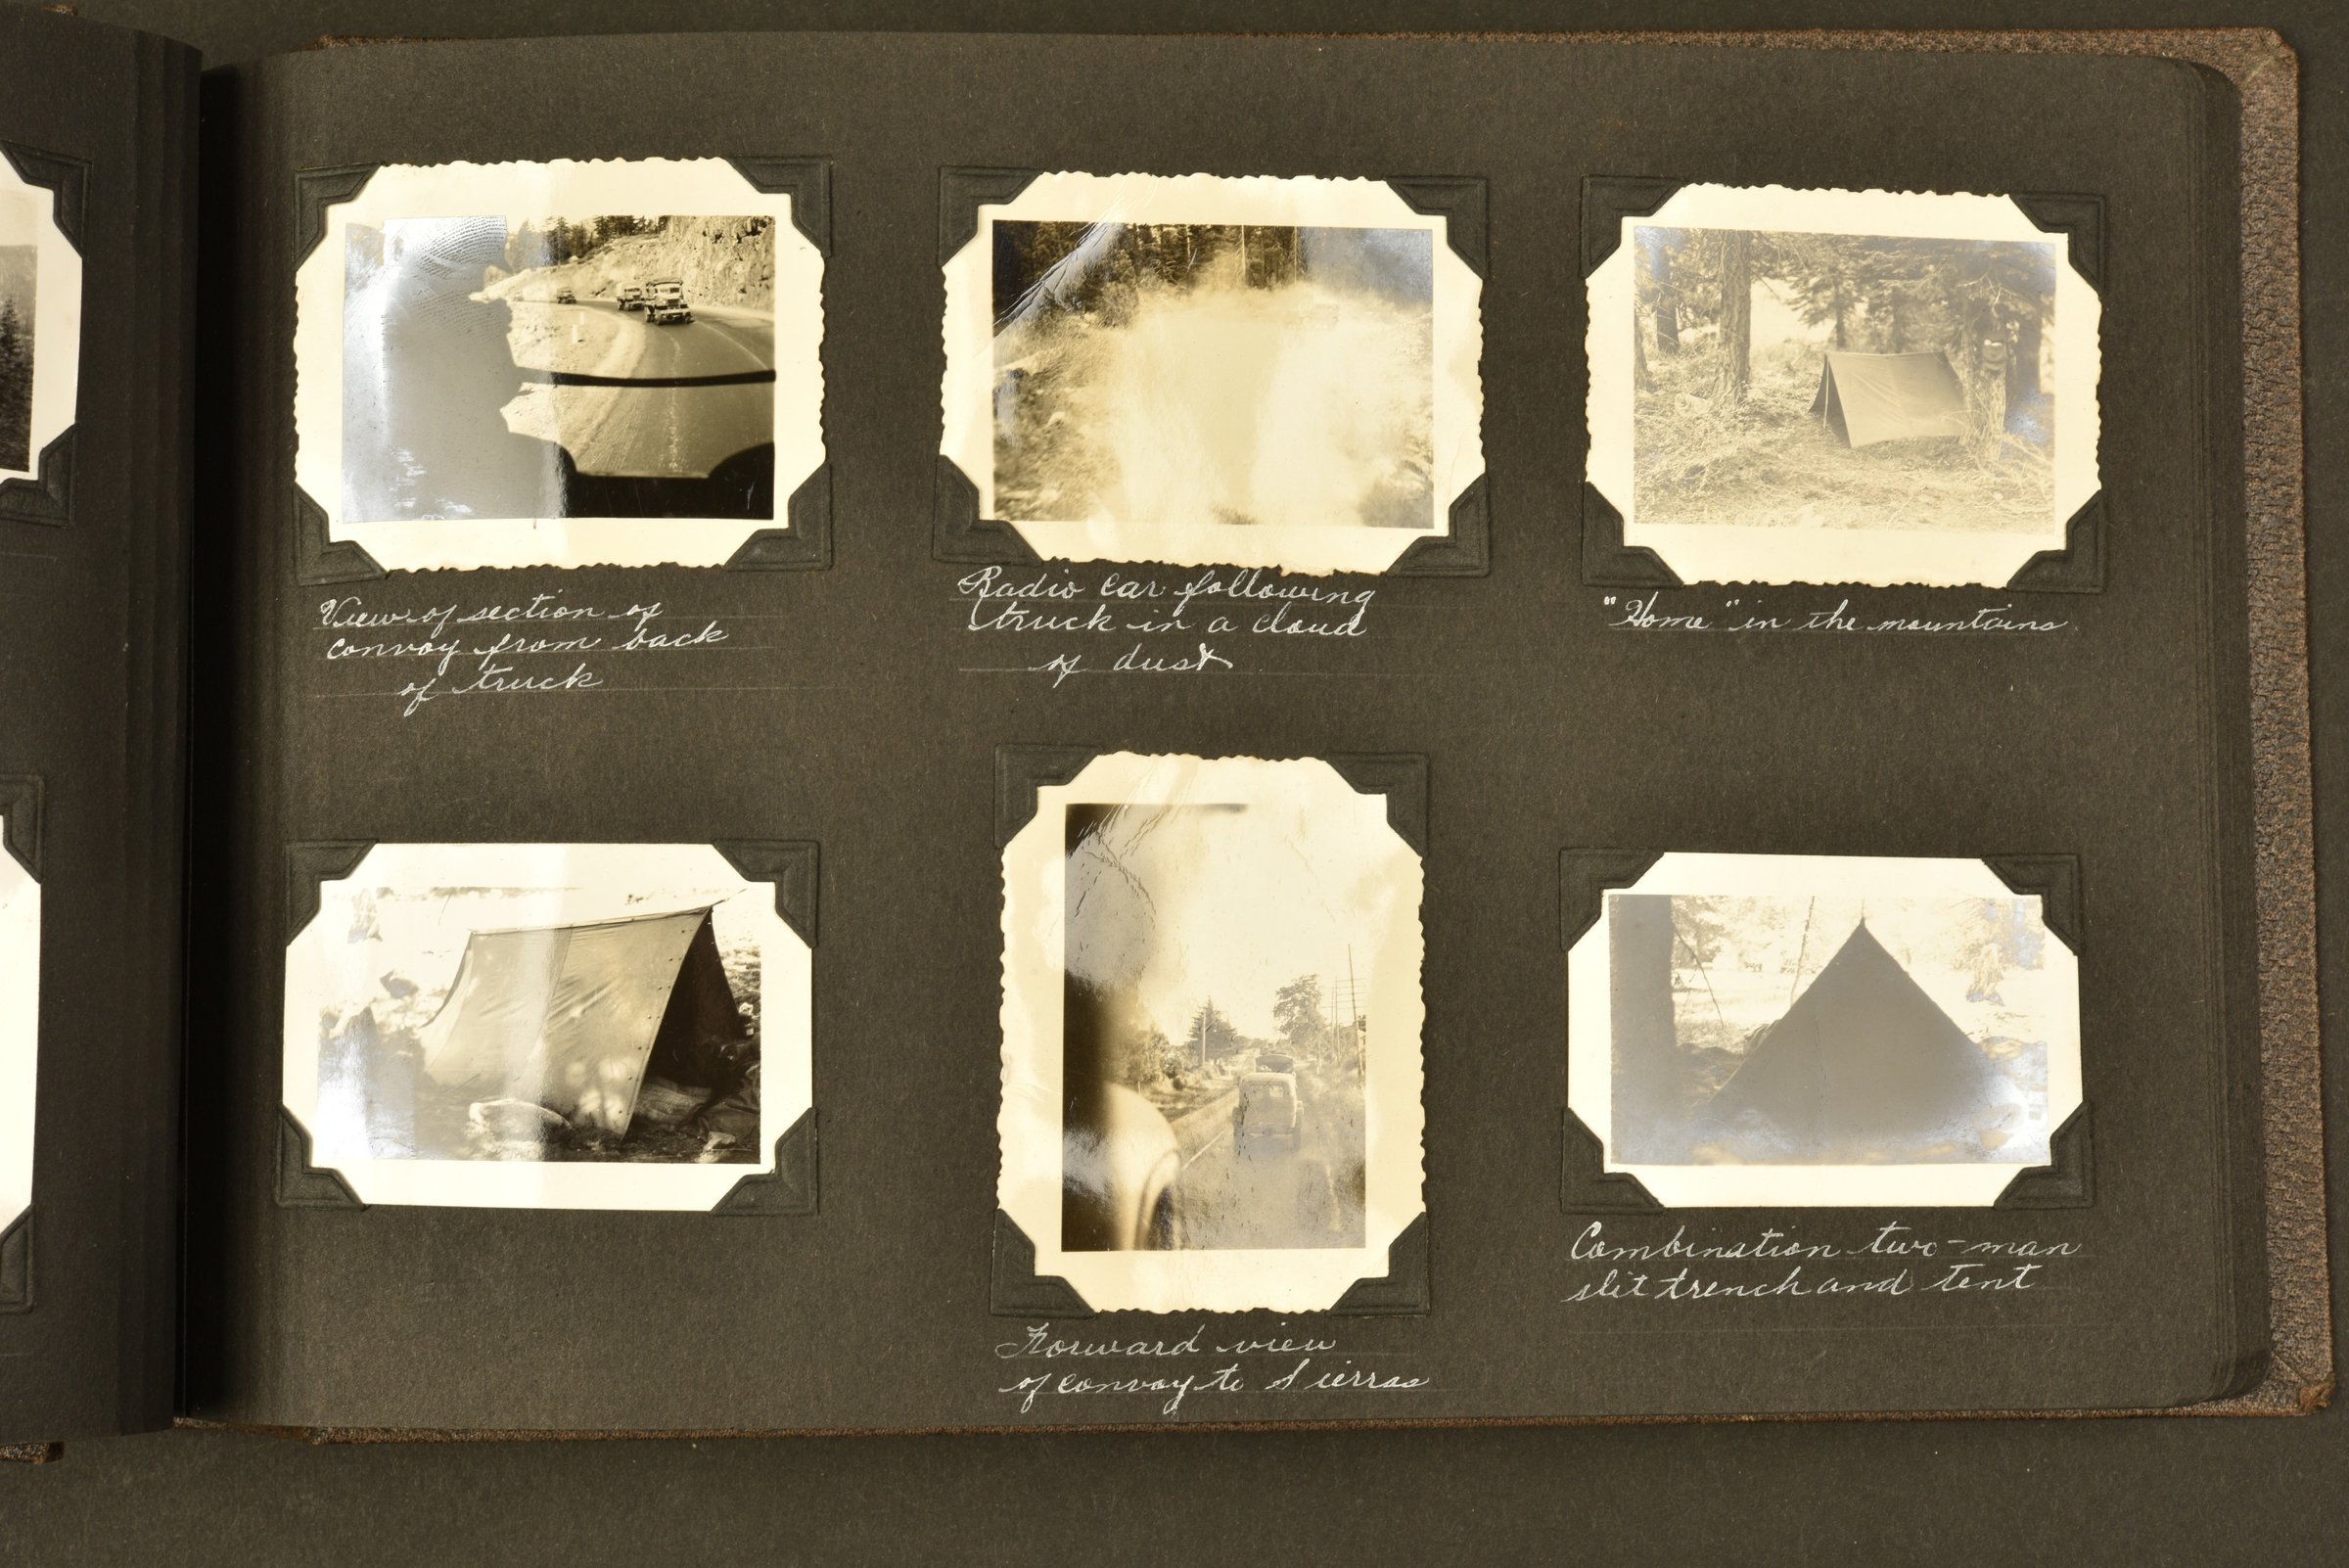 View of section of
convoy from back
of truck
Radio car following
truck in a cloud
of dust
"Home" in the mountains
Forward view
of convoy to Sierras
Combination two-man
slit trench and tent